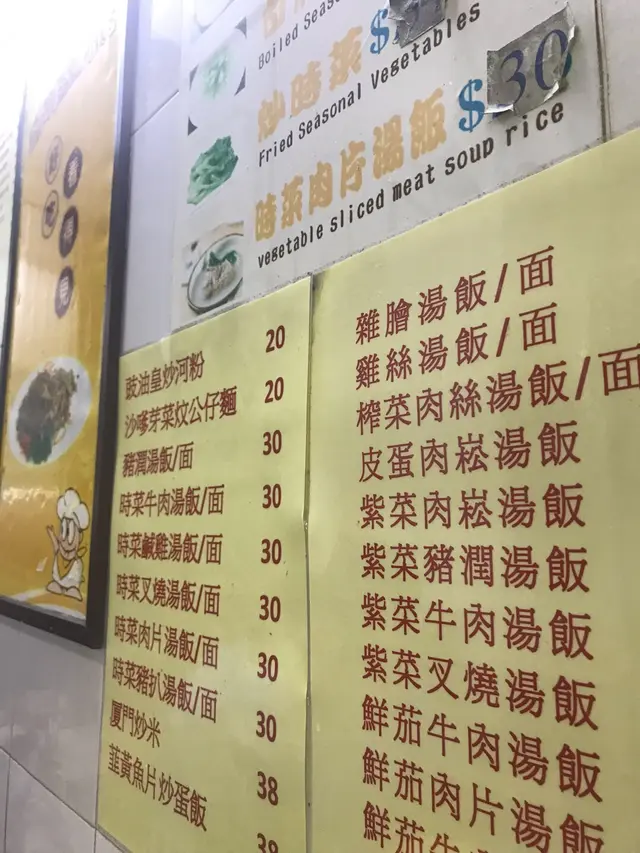 Boiled Seas
炒時菜 $
Fried Seasonal Vegetables
時菜肉片湯飯 $30
vegetable sliced meat soup rice
豉油皇炒河粉 20
沙嗲芽菜炆公仔麵 20
豬潤湯飯/面 30
時菜牛肉湯飯/面 30
時菜鹹雞湯飯/面 30
時菜叉燒湯飯/面 30
時菜肉片湯飯/面 30
時菜豬扒湯飯/面 30
廈門炒米 38
韮黃魚片炒蛋飯 38
雜膾湯飯/面
雞絲湯飯/面
榨菜肉絲湯飯/面
皮蛋肉崧湯飯
紫菜肉崧湯飯
紫菜豬潤湯飯
紫菜牛肉湯飯
紫菜叉燒湯飯
鮮茄牛肉湯飯
鮮茄肉片湯飯
鮮茄